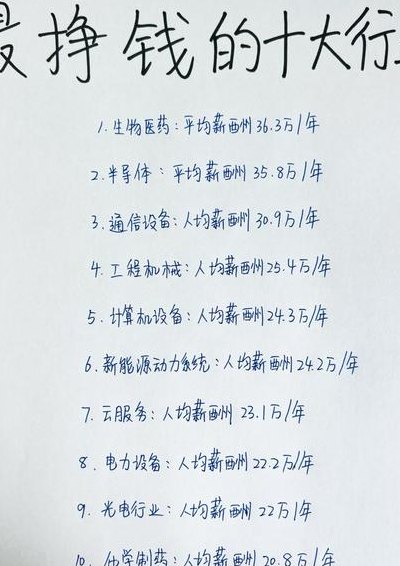 最挣钱的十大行
1. 生物医药：平均薪酬36.3万/年
2. 半导体：平均薪酬35.8万/年
3. 通信设备：人均薪酬30.9万/年
4. 工程机械：人均薪酬25.4万/年
5. 计算机设备：人均薪酬24.3万/年
6. 新能源动力系统：人均薪酬24.2万/年
7. 云服务：人均薪酬23.1万/年
8. 电力设备：人均薪酬22.2万/年
9. 光电行业：人均薪酬22万/年
10. 化学制药：人均薪酬20.8万/年